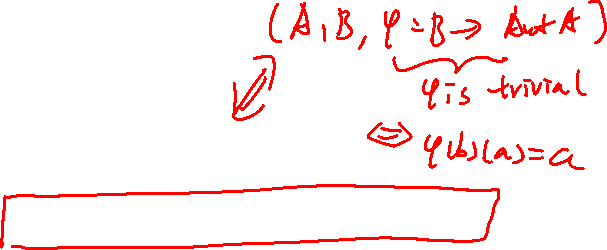 (A, B, φ = B → Aut A)
φ is trivial
⇔ φ(b)(a) = a